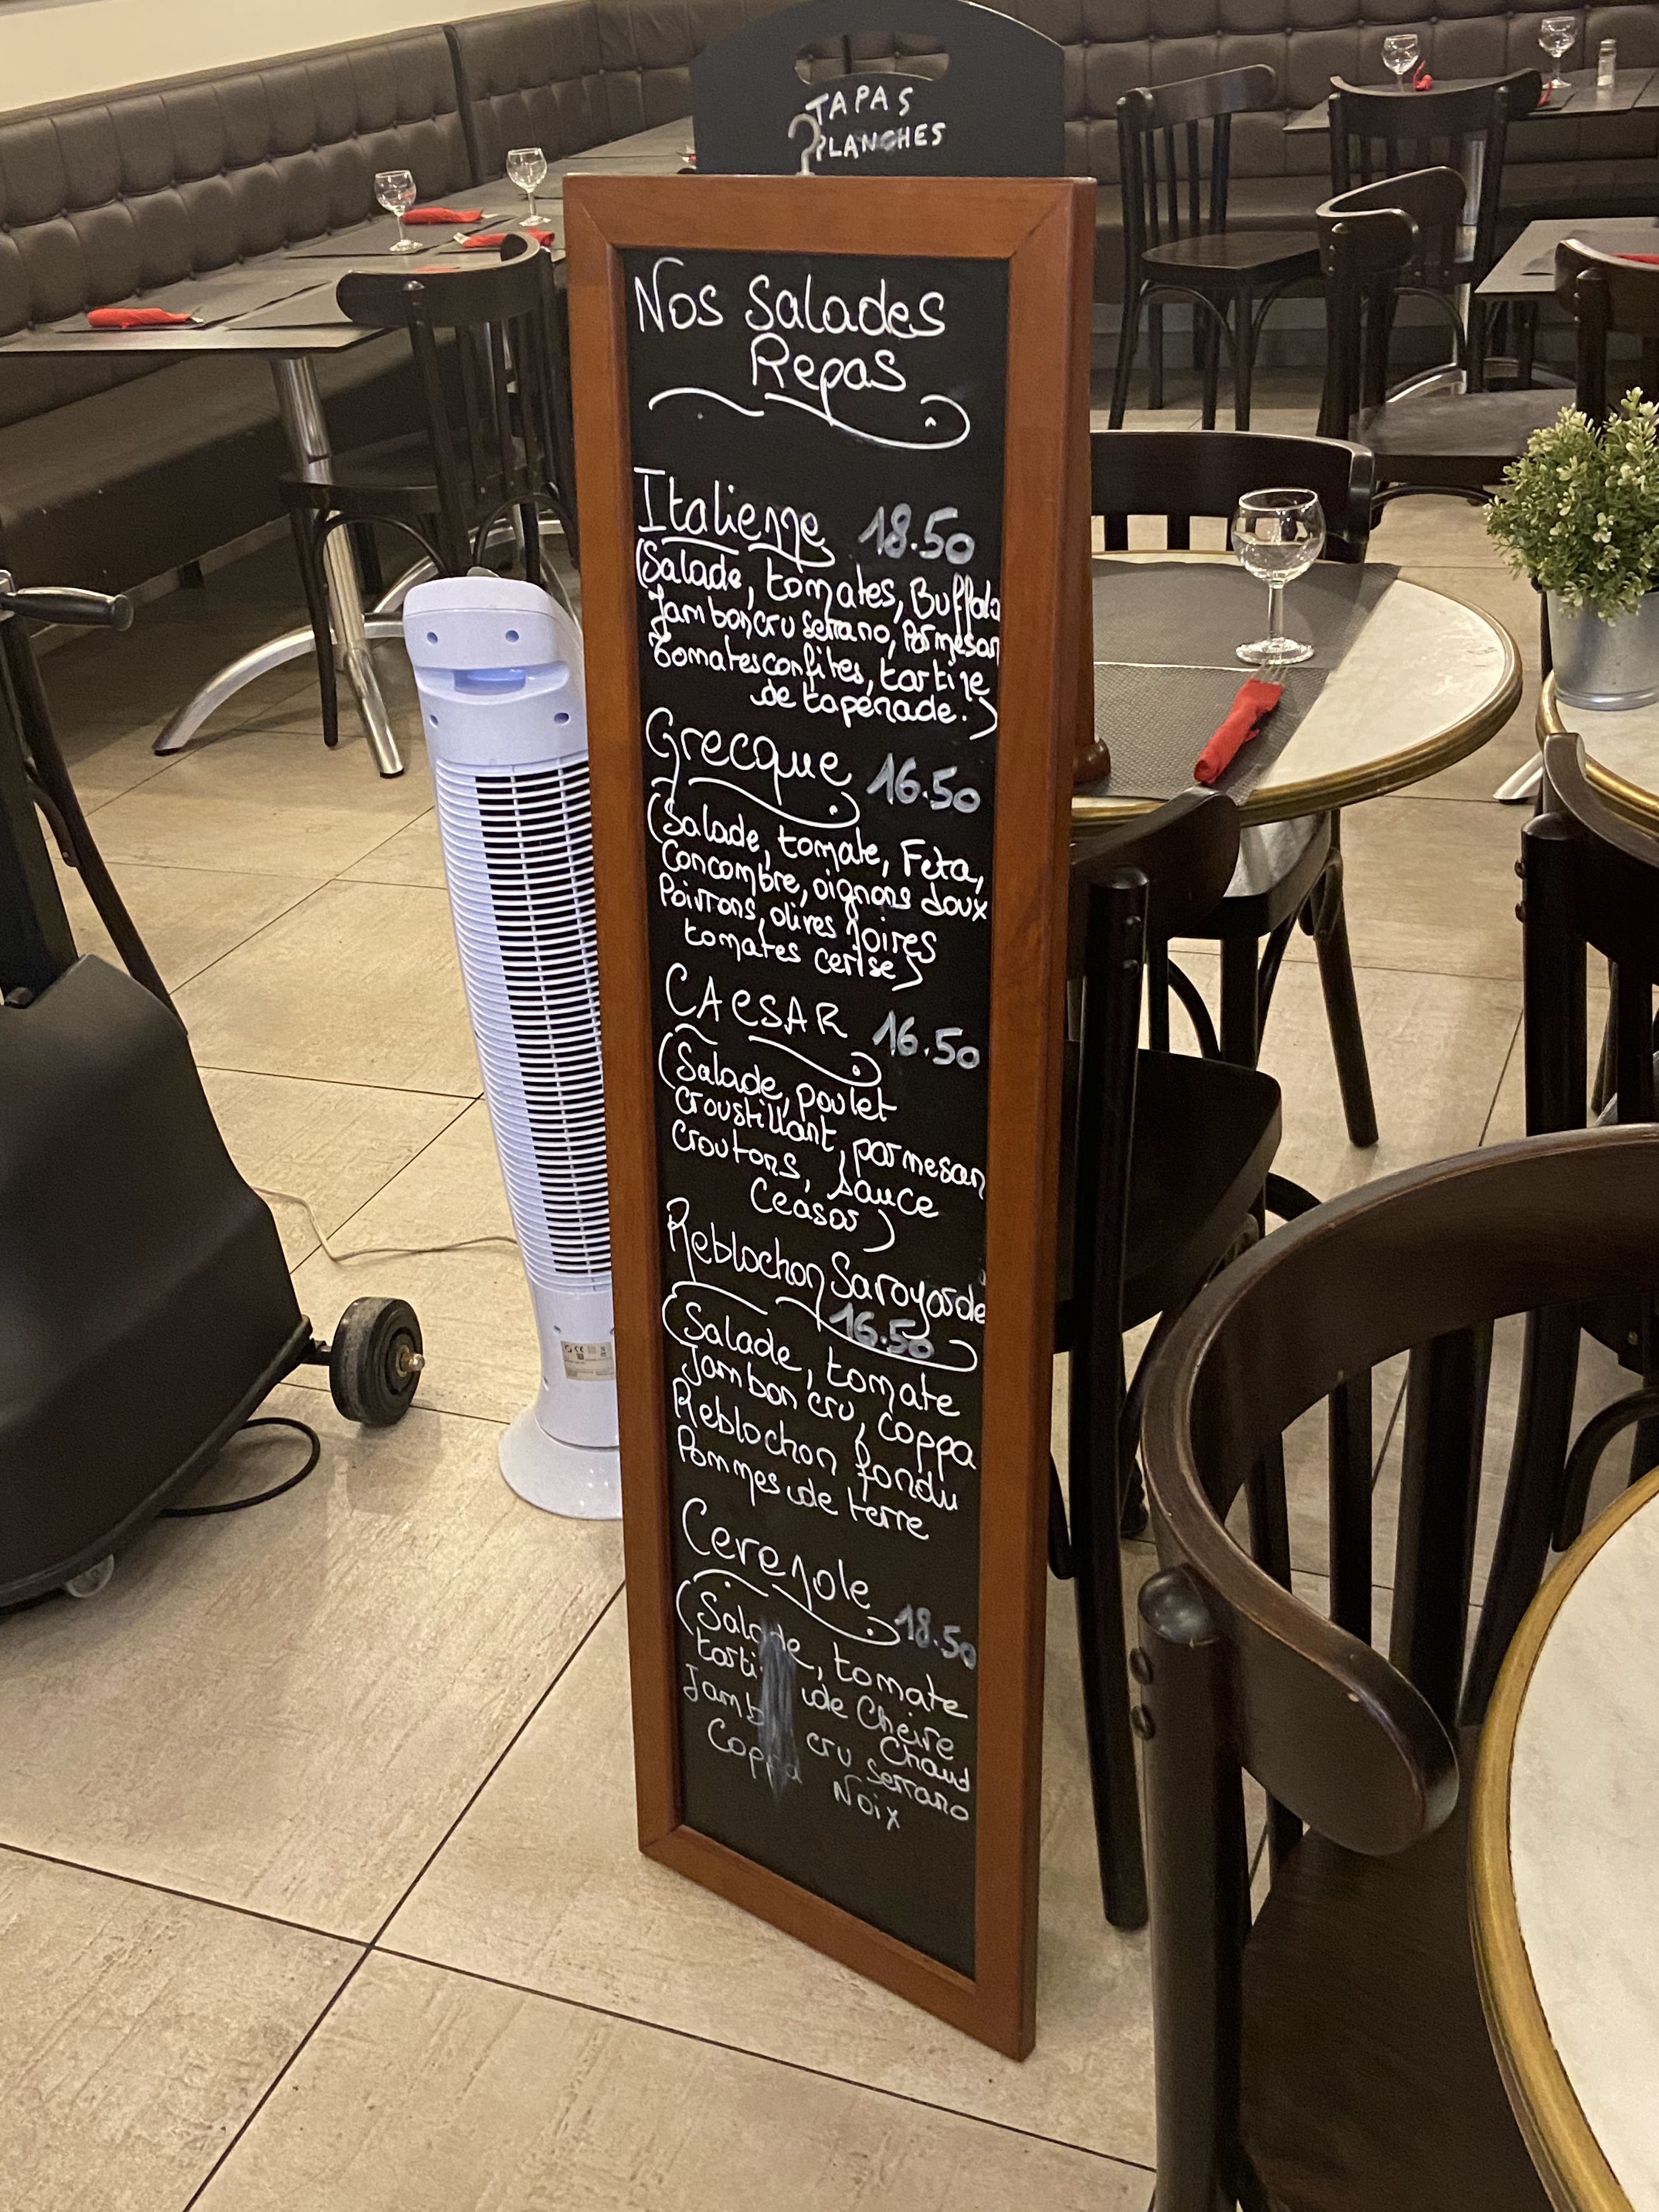 TAPAS
PLANCHES
Nos Salades
Repas
Italienne 18.50
(Salade, tomates, Buffala
Jambon cru serrano, Parmesan
Tomates confites, tartine
de tapenade.)
Grecque 16.50
(Salade, tomate, Feta,
Concombre, oignons doux
Poivrons, olives noires
tomates cerise)
CAESAR 16.50
(Salade, poulet
croustillant, parmesan
croutons, sauce
Ceasar)
Reblochon Savoyarde
16.50
(Salade, tomate
Jambon cru, Coppa
Reblochon fondu
Pommes de terre
Cerenole
18.50
(Salade, tomate
de Chèvre
Chaud
cru serrano
Coppa Noix